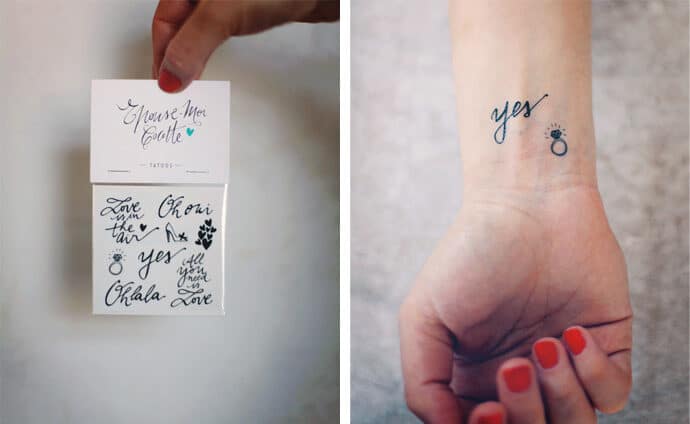 Epouse-Moi
Cocotte
TATOOS
Love
is in
the
air
Oh oui
yes
All
you
need
is
Love
Ohlala
yes